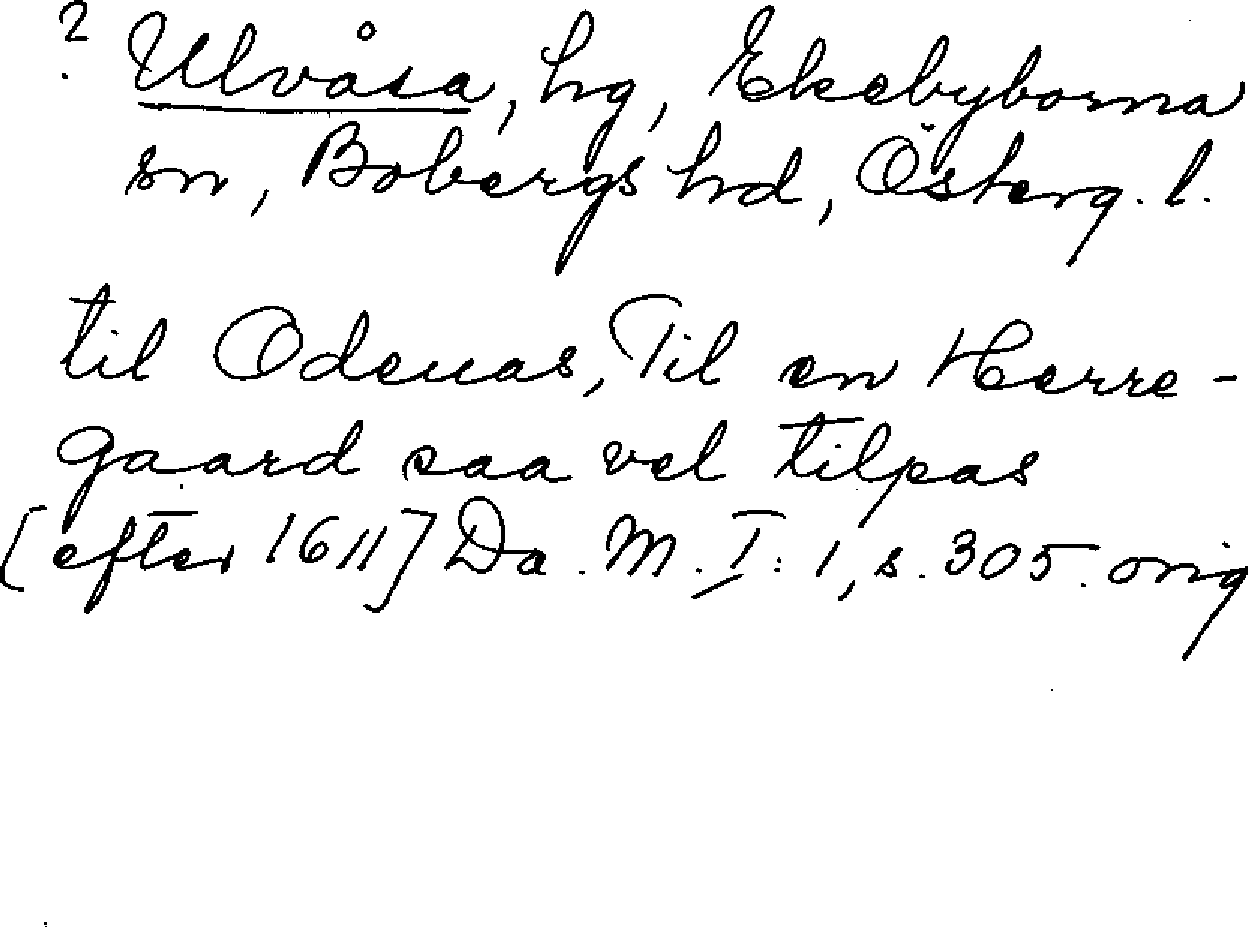 ? Ulvåsa, hg, Ekebyborna
sn, Bobergs hd, Österg. l.
til Odenas, Til en Herre-
gaard saa vel tilpas
[efter 1611] Da. M. I: 1, s. 305. orig